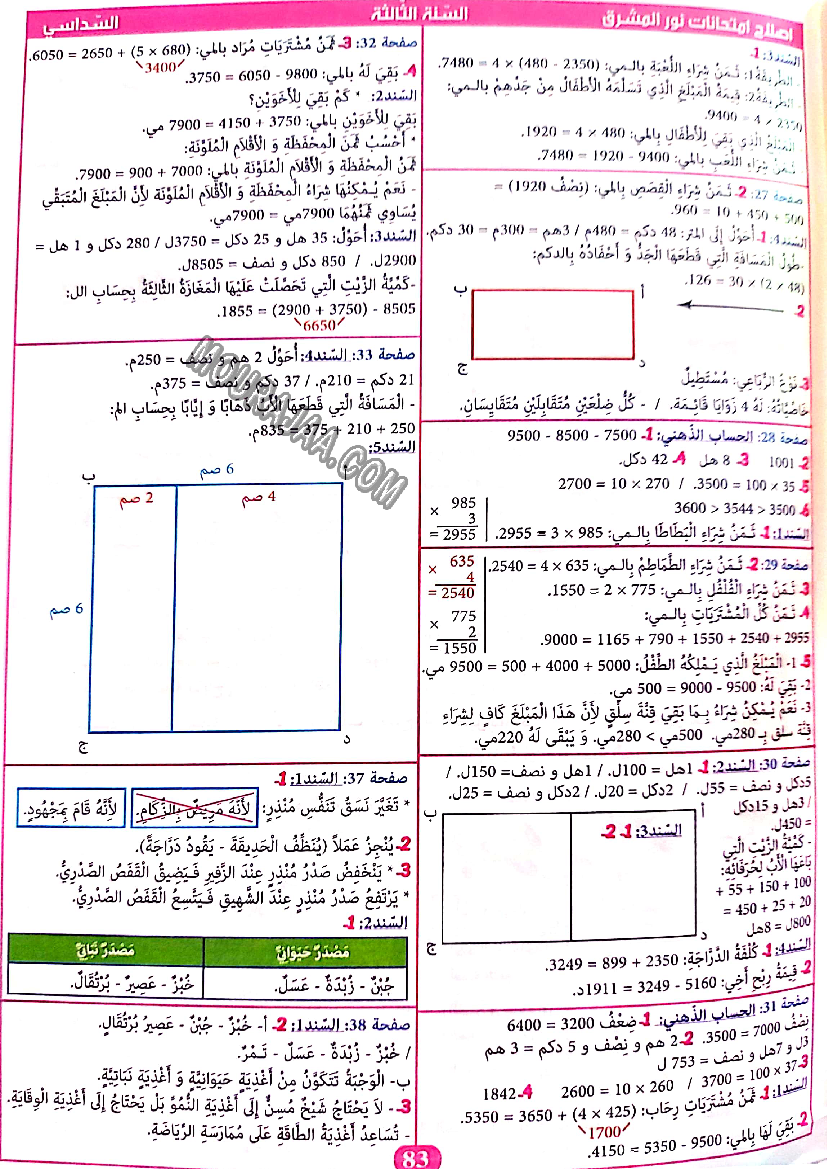 إصلاح امتحانات نور المشرق
السّنة الثّالثة
السّداسي
السّند3: 1-
- الطّريقة1: ثَمَنُ شِرَاءِ اللُّعْبَةِ بِالـمي: (2350 - 480) × 4 = 7480.
- الطّريقة2: قِيمَةُ الْمَبْلَغِ الَّذِي تَسَلَّمَهُ الْأَطْفَالُ مِنْ جَدِّهِمْ بِالـمي:
2350 × 4 = 9400.
الْمَبْلَغُ الَّذِي بَقِيَ لِلْأَطْفَالِ بِالمي: 480 × 4 = 1920.
ثَمَنُ شِرَاءِ اللُّعَبِ بالمي: 9400 - 1920 = 7480.
صفحة 27: 2- ثَمَنُ شِرَاءِ الْقِصَصِ بِالمي: (نِصْفُ 1920) =
500 + 450 + 10 = 960.
السّند4: 1- أُحَوِّلُ إِلَى المتر: 48 دكم = 480م / 3هم = 300م = 30 دكم.
-طُولُ الْمَسَافَةِ الَّتِي قَطَعَهَا الْجَدُّ وَ أَحْفَادُهُ بِالدكم:
(48 × 2) × 30 = 126.
2-
أ
ب
ج
د
3- نَوْعُ الرُّبَاعِي: مُسْتَطِيلٌ
خَاصِّيَّاتُهُ: لَهُ 4 زَوَايَا قَائِمَة. / - كُلُّ ضِلْعَيْنِ مُتَقَابِلَيْنِ مُتَقَايِسَانِ.
صفحة 28: الحساب الذّهني: 1- 7500 - 8500 - 9500
2- 1001 3- 8 هل 4- 42 دكل.
5- 35 × 100 = 3500. / 270 × 10 = 2700
6- 3500 < 3544 < 3600
السّند1: 1- ثَمَنُ شِرَاءِ الْبَطَاطَا بِالـمي: 985 × 3 = 2955.
985
× 3
= 2955
صفحة 29: 2- ثَمَنُ شِرَاءِ الطَّمَاطِمِ بِالـمي: 635 × 4 = 2540.
3- ثَمَنُ شِرَاءِ الْفُلْفُلِ بِالـمي: 775 × 2 = 1550.
4- ثَمَنُ كُلِّ الْمُشْتَرَيَاتِ بِالـمي:
2955 + 2540 + 1550 + 790 + 1165 = 9000.
635
× 4
= 2540
775
× 2
= 1550
5- 1- الْمَبْلَغُ الَّذِي يَمْلِكُهُ الطِّفْلُ: 5000 + 4000 + 500 = 9500 مي.
2- بَقِيَ لَهُ: 9500 - 9000 = 500 مي.
3- نَعَمْ يُمْكِنُ شِرَاءُ بِمَا بَقِيَ قِنَّةَ سِلْقٍ لِأَنَّ هَذَا الْمَبْلَغَ كَافٍ لِشِرَاءِ
قِنَّةِ سلق بِـ 280مي. 500مي > 280مي. وَ يَبْقَى لَهُ 220مي.
صفحة 30: السّند2: 1- 1هل = 100ل. / 1هل و نصف= 150ل. /
5دكل و نصف = 55ل. / 2دكل = 20ل. / 2دكل و نصف = 25ل.
/ 3هل و 15دكل
= 450ل.
- كَمِّيَّةُ الزَّيْتِ الَّتِي
بَاعَهَا الْأَبُ لِحُرَفَائِهِ:
100 + 150 + 55 +
20 + 25 + 450 =
800ل = 8هل
السّند3: 1- 2-
أ
ب
ج
د
السّند4: 1- كُلْفَةُ الدَّرَّاجَةِ: 2350 + 899 = 3249.
2- قِيمَةُ رِبْحِ أَخِي: 5160 - 3249 = 1911د.
صفحة 31: الحساب الذّهني: 1- ضِعْفُ 3200 = 6400
نِصْفُ 7000 = 3500. 2- 2 هم و نِصْف و 5 دكم = 3 هم
3ل و 7هل و نصف = 753 ل
3- 37 × 100 = 3700 / 260 × 10 = 2600 4- 1842
السّند1: 1- ثَمَنُ مُشْتَرَيَاتِ رِحَاب: (425 × 4) + 3650 = 5350.
1700
2- بَقِيَ لَهَا بالمي: 9500 - 5350 = 4150.
صفحة 32: 3- ثَمَنُ مُشْتَرَيَاتِ مُرَاد بالمي: (680 × 5) + 2650 = 6050.
3400
4- بَقِيَ لَهُ بالمي: 9800 - 6050 = 3750.
السّند2: * كَمْ بَقِيَ لِلْأَخَوَيْنِ؟
بَقِيَ لِلْأَخَوَيْنِ بالمي: 3750 + 4150 = 7900 مي.
* أَحْسُبُ ثَمَنَ الْمِحْفَظَةِ وَ الْأَقْلَامِ الْمُلَوَّنَةِ:
ثَمَنُ الْمِحْفَظَةِ وَ الْأَقْلَامِ الْمُلَوَّنَةِ بالمي: 7000 + 900 = 7900.
- نَعَمْ يُمْكِنُهَا شِرَاءُ الْمِحْفَظَةِ وَ الْأَقْلَامِ الْمُلَوَّنَةِ لِأَنَّ الْمَبْلَغَ الْمُتَبَقِّي
يُسَاوِي ثَمَنَهُمَا 7900مي = 7900مي.
السّند3: أُحَوِّلُ: 35 هل و 25 دكل = 3750ل / 280 دكل و 1 هل =
2900ل. / 850 دكل و نصف = 8505ل.
-كَمِّيَّةُ الزَّيْتِ الَّتِي تَحَصَّلَتْ عَلَيْهَا الْمَغَازَةُ الثَّالِثَةُ بِحِسَابِ الل:
8505 - (3750 + 2900) = 1855.
6650
صفحة 33: السّند4: أُحَوِّلُ 2 هم و نصف = 250م.
21 دكم = 210م. / 37 دكم و نصف = 375م.
- الْمَسَافَةُ الَّتِي قَطَعَهَا الْأَبُ ذَهَابًا وَ إِيَّابًا بِحِسَابِ الم:
250 + 210 + 375 = 835م.
السّند5:
MOURAJAA.COM
ب
6 صم
4 صم
2 صم
6 صم
ج
د
صفحة 37: السّند1: 1-
* تَغَيَّرَ نَسَقُ تَنَفُّسِ مُنْذِرٍ: لِأَنَّهُ مَرِيضٌ بِالزُّكَامِ. لِأَنَّهُ قَامَ بِمَجْهُودٍ.
2- يُنْجِزُ عَمَلًا (يُنَظِّفُ الْحَدِيقَةَ - يَقُودُ دَرَّاجَةً).
3- * يَنْخَفِضُ صَدْرُ مُنْذِرٍ عِنْدَ الزَّفِيرِ فَيَضِيقُ الْقَفَصُ الصَّدْرِيُّ.
* يَرْتَفِعُ صَدْرُ مُنْذِرٍ عِنْدَ الشَّهِيقِ فَيَتَّسِعُ الْقَفَصُ الصَّدْرِيُّ.
السّند2: 1-
مَصْدَرٌ حَيَوَانِيٌّ
مَصْدَرٌ نَبَاتِيٌّ
جُبْنٌ - زُبْدَةٌ - عَسَلٌ.
خُبْزٌ - عَصِيرٌ - بُرْتُقَالٌ.
صفحة 38: السّند1: 2- أ- خُبْزٌ - جُبْنٌ - عَصِيرُ بُرْتُقَالٍ.
/ خُبْزٌ - زُبْدَةٌ - عَسَلٌ - تَمْرٌ.
ب- الْوَجْبَةُ تَتَكَوَّنُ مِنْ أَغْذِيَةٍ حَيَوَانِيَّةٍ وَ أَغْذِيَةٍ نَبَاتِيَّةٍ.
3- - لَا يَحْتَاجُ شَيْخٌ مُسِنٌّ إِلَى أَغْذِيَةِ النُّمُوِّ بَلْ يَحْتَاجُ إِلَى أَغْذِيَةِ الْوِقَايَةِ.
- تُسَاعِدُ أَغْذِيَةُ الطَّاقَةِ عَلَى مُمَارَسَةِ الرِّيَاضَةِ.
83